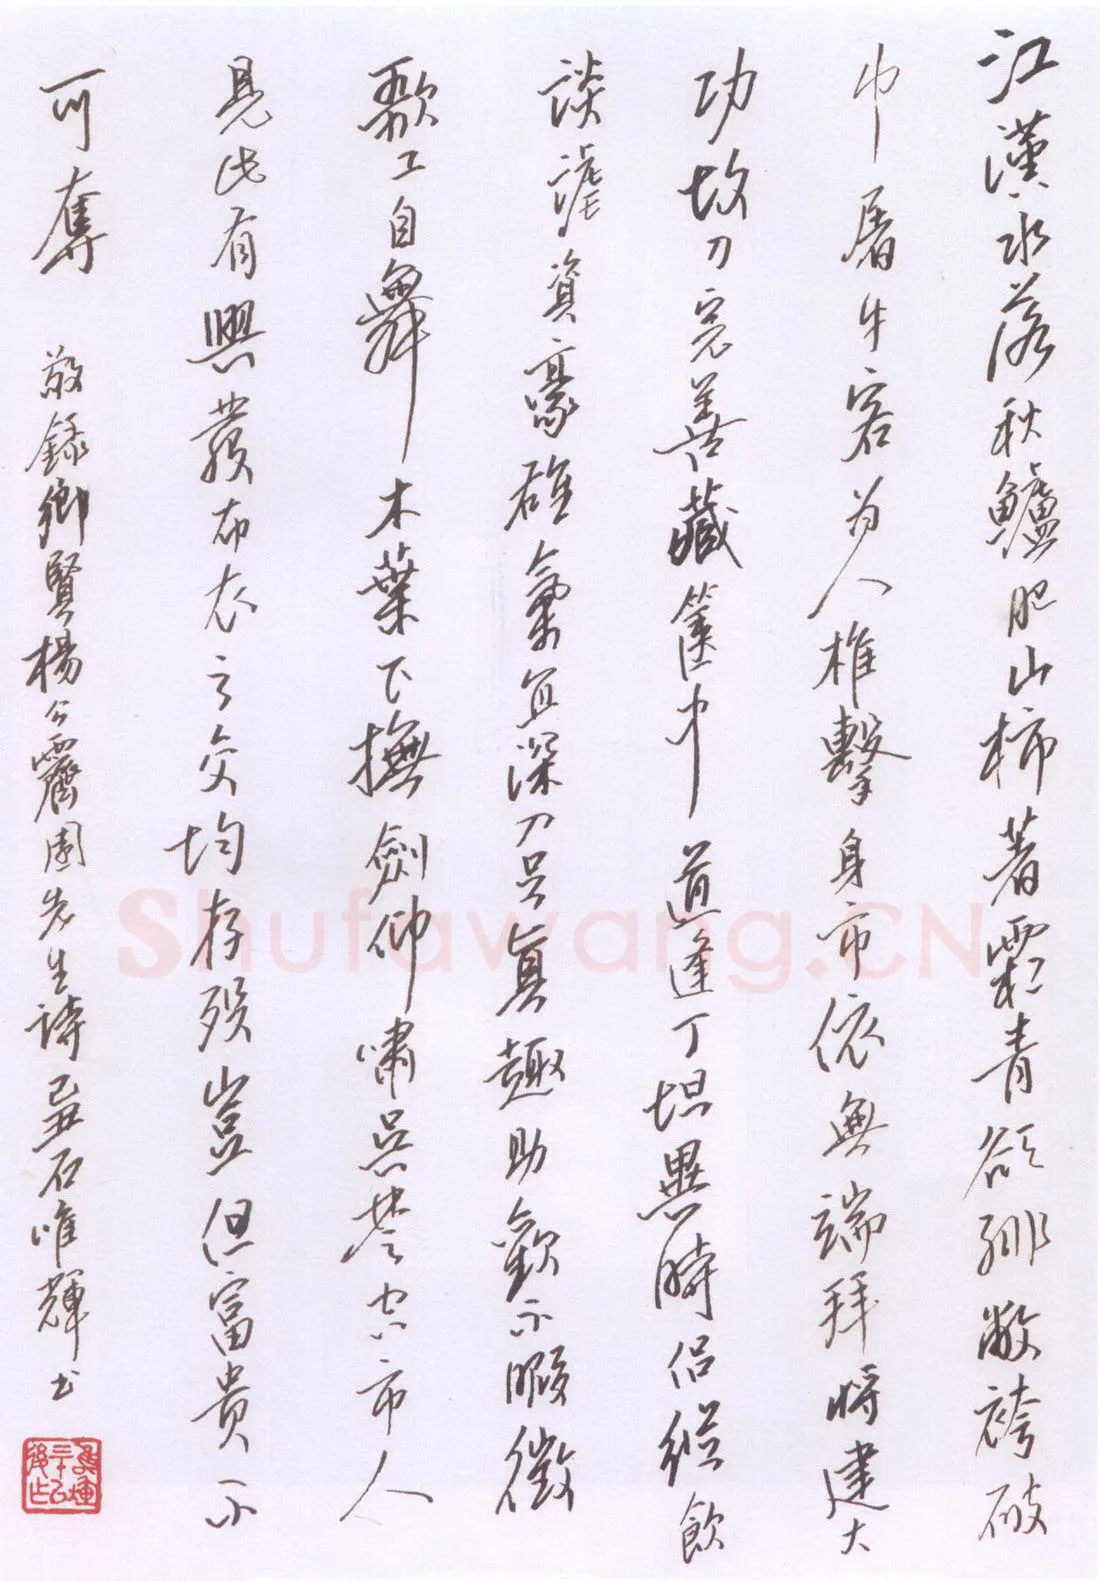 江漢水落秋鱸肥山柿著霜青欲緋敝袴破
巾屠牛客為人椎擊身市依無端拜將建大
功故刀完善藏篋中道逢丁坦異時侶縱飲
談謔資豪雄氣宜深刀呈真趣助歡不暇徵
歌工自舞木葉下撫劍仰嘯吳楚空市人
見此有興發布衣之交均存歿豈但富貴不
可奪
敬錄鄉賢楊公霽園先生詩己丑石唯輝書
Shufawang.CN